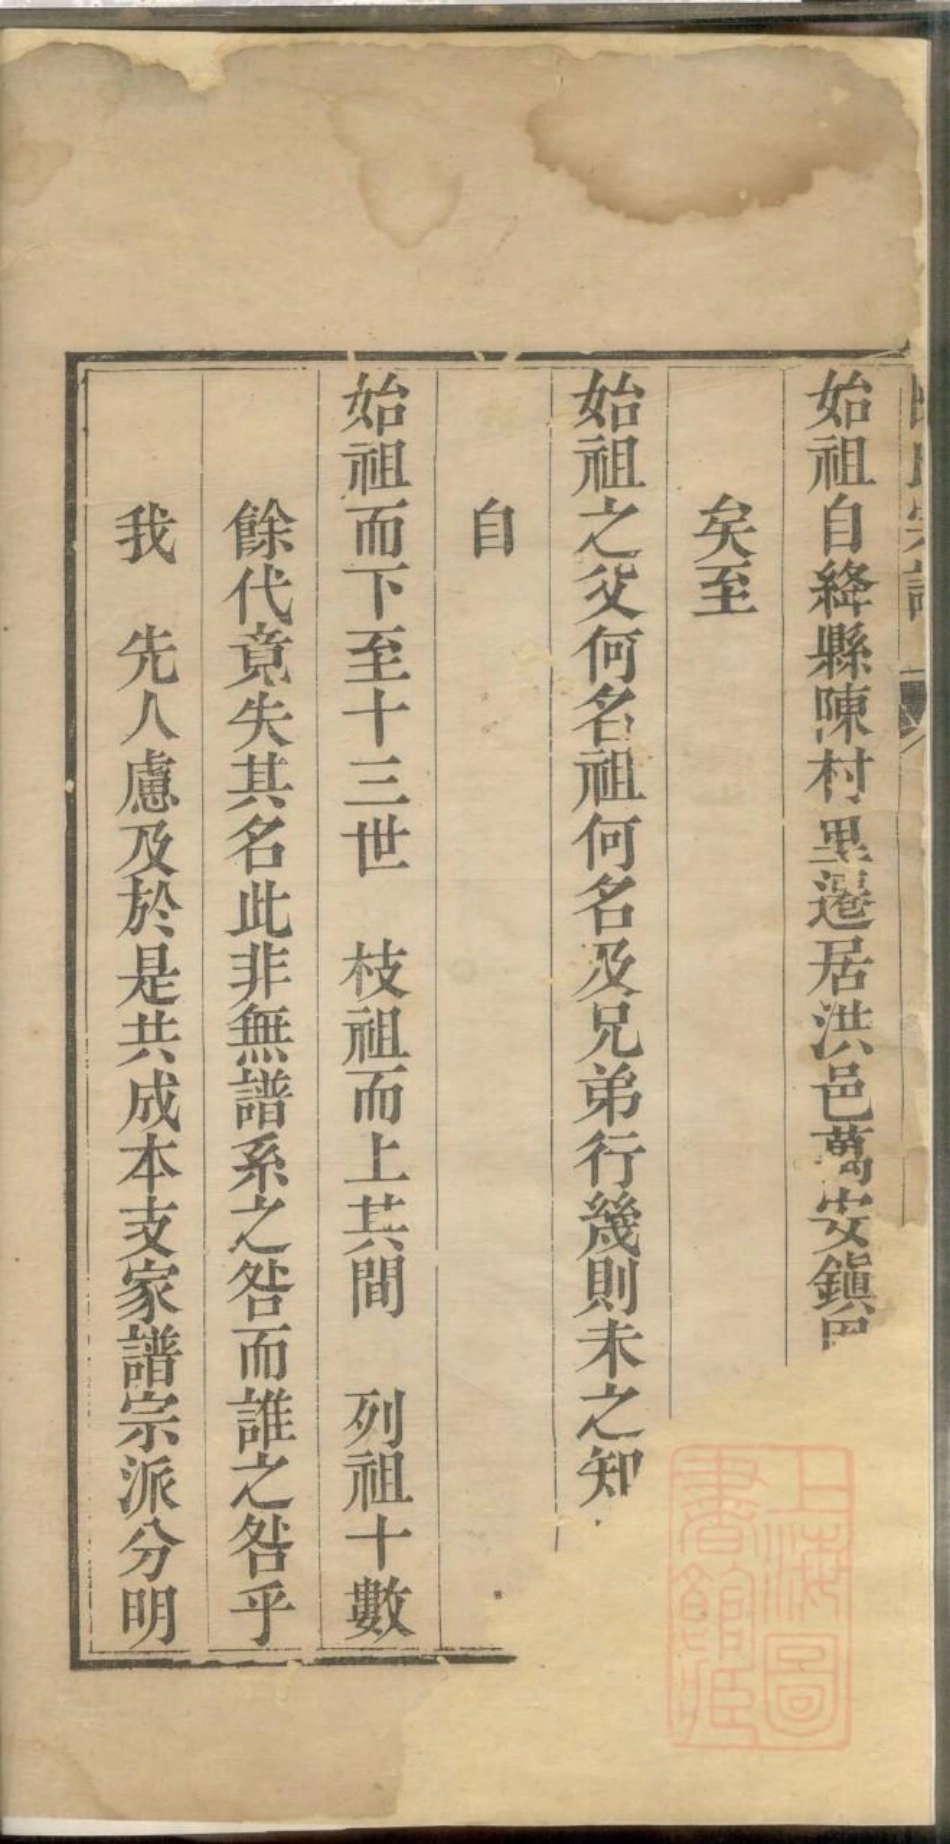 始祖自絳縣陳村里遷居洪邑萬安鎮
矣至
始祖之父何名祖何名及兄弟行幾則未之知
自
始祖而下至十三世　枝祖而上其間　列祖十數
餘代竟失其名此非無譜系之咎而誰之咎乎
我　先人慮及於是共成本支家譜宗派分明
上海圖
書館藏